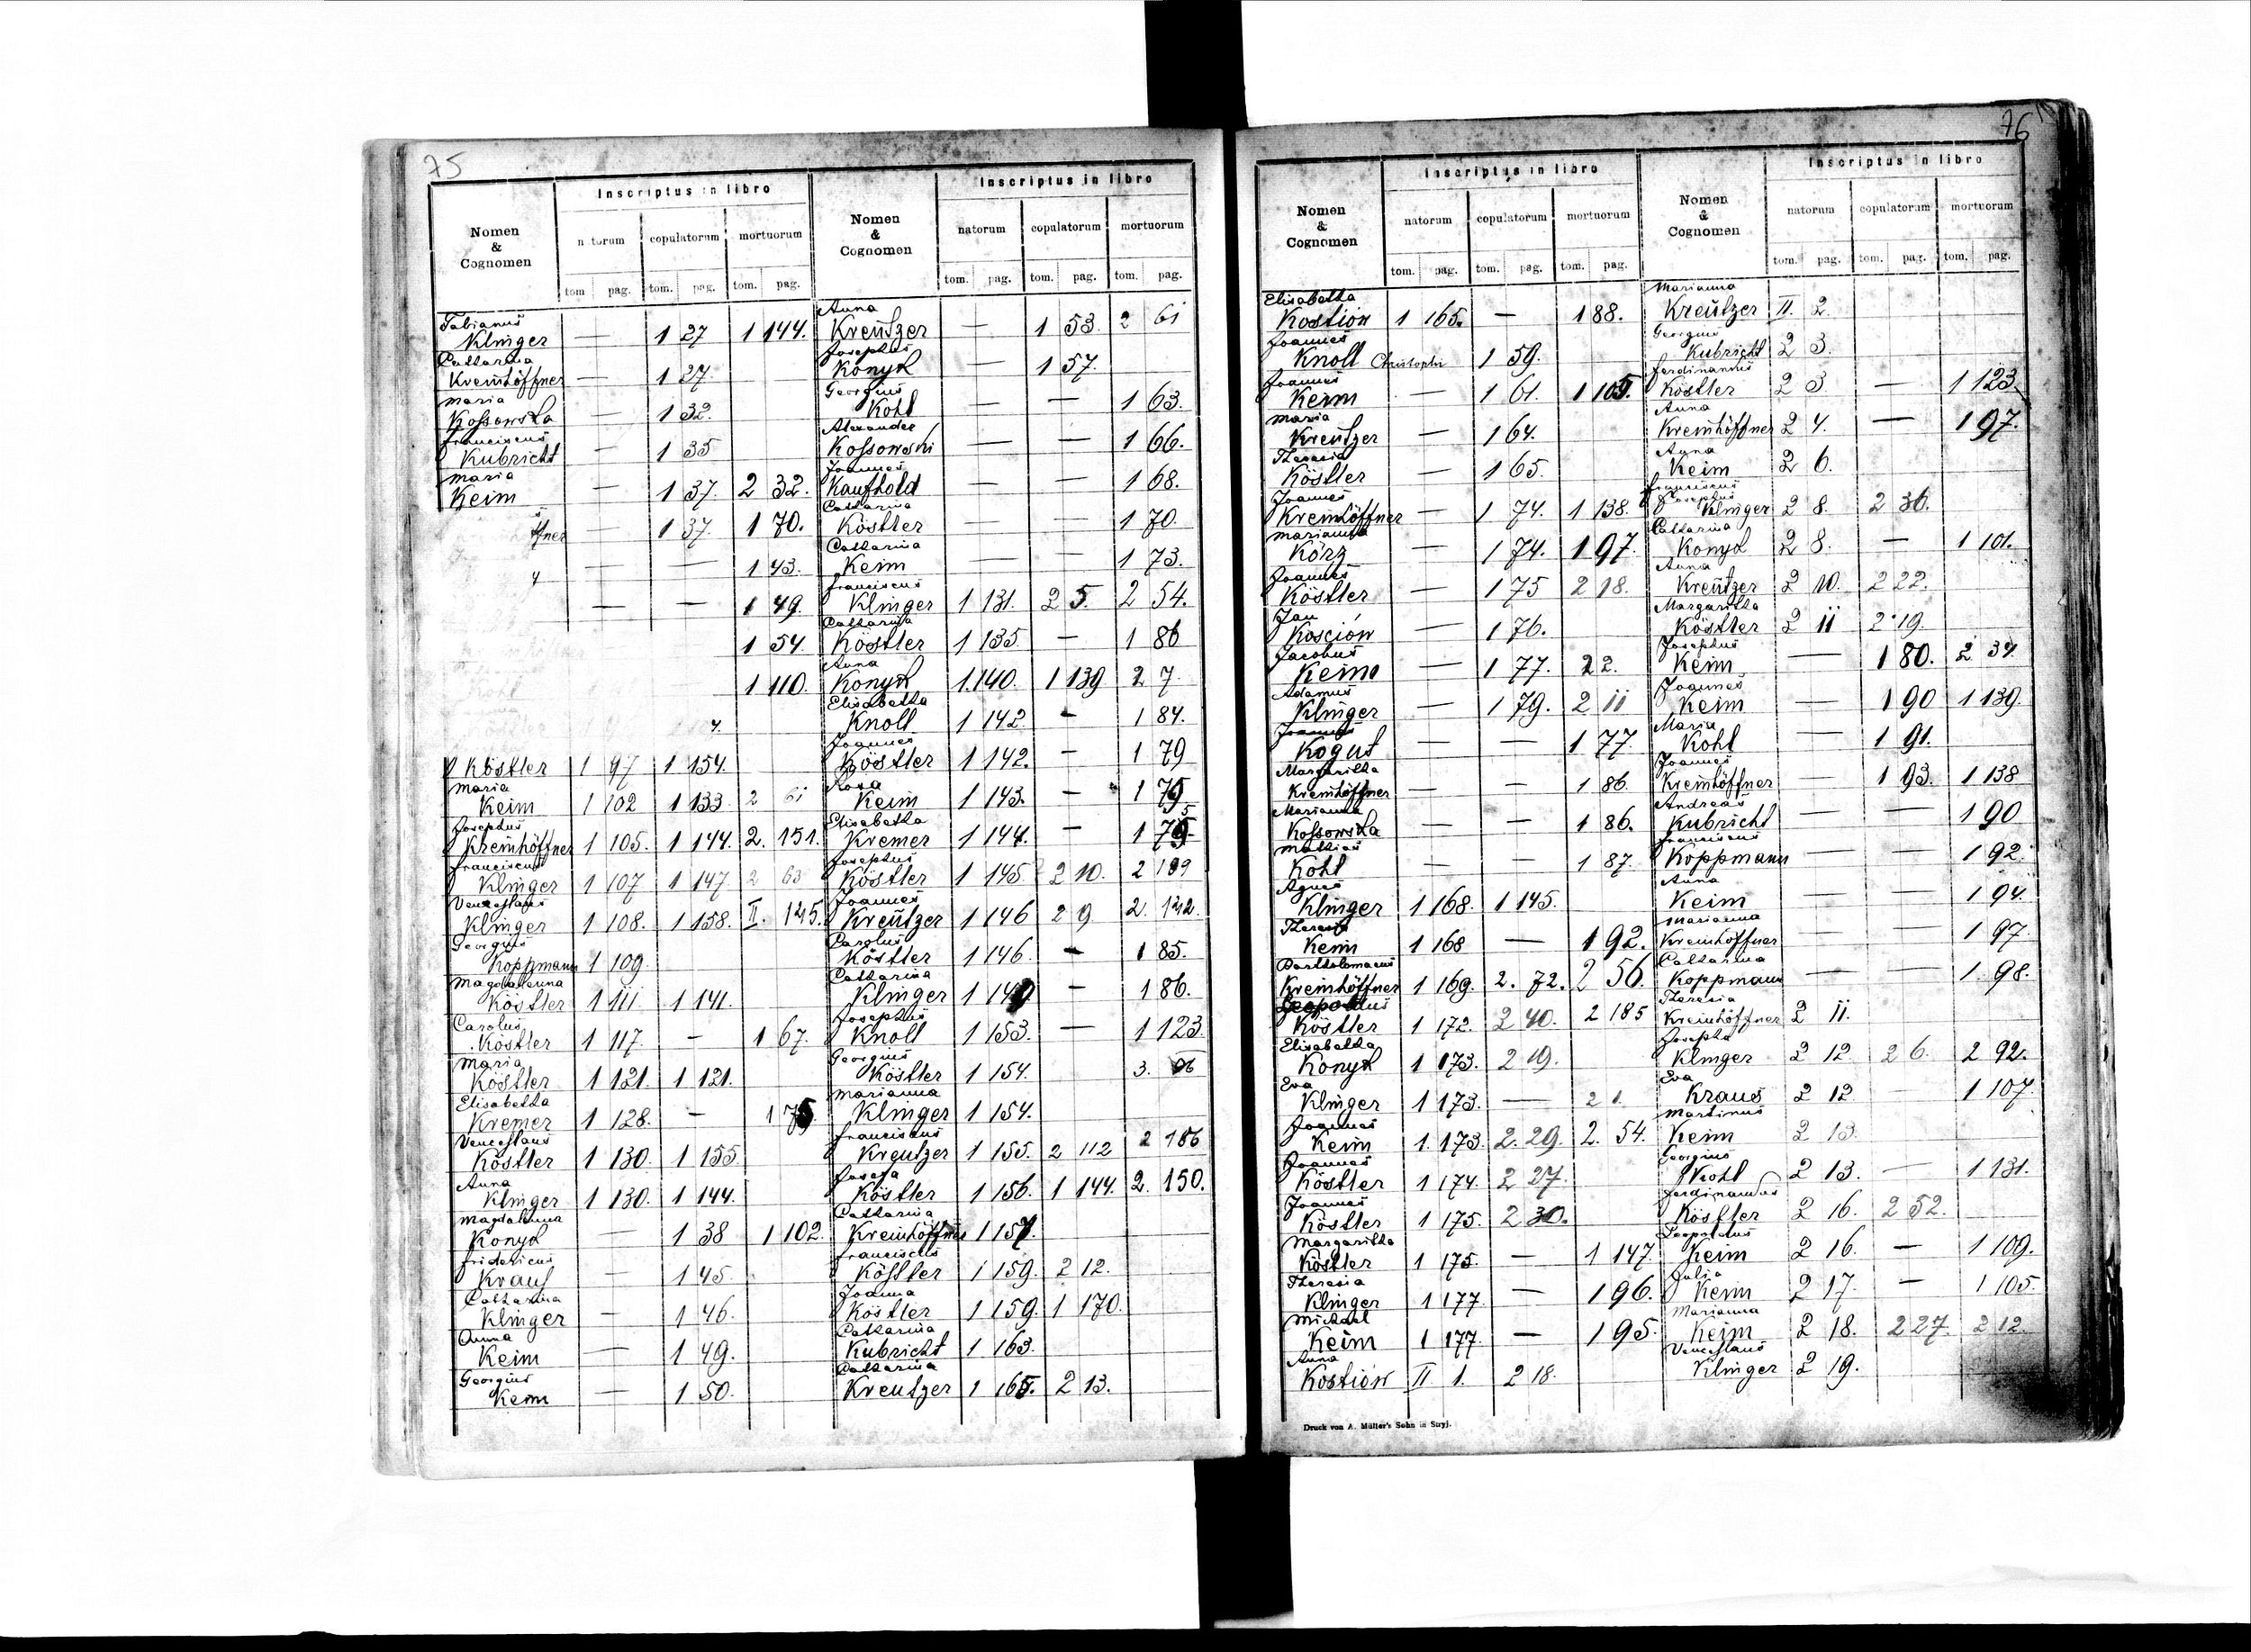 75
Inscriptus in libro
Inscriptus in libro
Nomen & Cognomen
natorum copulatorum mortuorum
Nomen & Cognomen
natorum copulatorum mortuorum
tom. pag. tom. pag. tom. pag.
tom. pag. tom. pag. tom. pag.
Fabianus
Klinger — 1 27 1 144.
Catharina
Kreimhöffner — 1 27
Maria
Kossowska — 1 32.
Franciscus
Kubricht — 1 35
Maria
Keim — 1 37. 2 32.
ffner — 1 37. 1 70.
— — 1 43.
— — 1 49.
1 54.
1 110.
Köstler 1 97 1 154.
Maria
Keim 1 102 1 133. 2 61
Josephus
Kreimhöffner 1 105. 1 144. 2. 151.
Franciscus
Klinger 1 107 1 147 2 63
Venceslaus
Klinger 1 108. 1 158. II. 145.
Georgius
Koppmann 1 109.
Magdalenna
Köstler 1 111. 1 141.
Carolus
Köstler 1 117. — 1 67.
Maria
Köstler 1 121. 1 121.
Elisabetha
Kremer 1 128. — 1 75
Venceslaus
Köstler 1 130. 1 155.
Anna
Klinger 1 130. 1 144.
Magdalenna
Konyk — 1 38 1 102.
Fridericus
Krauß — 1 45.
Catharina
Klinger — 1 46.
Anna
Keim — 1 49.
Georgius
Keim — 1 50.
Anna
Kreutzer — 1 53. 2 61
Josephus
Konyk — 1 57.
Georgius
Kohl — — 1 63.
Alexander
Kossowski — — 1 66.
Joannes
Kaufhold — — 1 68.
Catharina
Köstler — — 1 70
Catharina
Keim — — 1 73.
Franciscus
Klinger 1 131. 2 5. 2 54.
Catharina
Köstler 1 135 — 1 86
Anna
Konyk 1. 140. 1 139 2 7.
Elisabetha
Knoll 1 142. — 1 84.
Joannes
Köstler 1 142. — 1 79
Rosa
Keim 1 143. — 1 75
Elisabetha
Kremer 1 144. — 1 75
Josephus
Köstler 1 145. 2 10. 2 199
Joannes
Kreutzer 1 146 2 9. 2. 142.
Carolus
Köstler 1 146. — 1 85.
Catharina
Klinger 1 149 — 1 86.
Josephus
Knoll 1 153. — 1 123.
Georgius
Köstler 1 154. 3. 96
Marianna
Klinger 1 154.
Franciscus
Kreutzer 1 155. 2 112 2 186
Josefa
Köstler 1 156. 1 144. 2. 150.
Catharina
Kreimhöffner 1 157.
Franciscus
Köstler 1 159. 2 12.
Joanna
Köstler 1 159. 1 170.
Catharina
Kubricht 1 163.
Catharina
Kreutzer 1 165. 2 13.
76
Inscriptus in libro
Inscriptus in libro
Nomen & Cognomen
natorum copulatorum mortuorum
Nomen & Cognomen
natorum copulatorum mortuorum
tom. pag. tom. pag. tom. pag.
tom. pag. tom. pag. tom. pag.
Elisabetha
Kostion 1 165. — 1 88.
Joannes
Knoll Christophi 1 59.
Joannes
Keim — 1 61. 1 105.
Maria
Kreutzer — 1 64.
Theresia
Köstler — 1 65.
Joannes
Kreimhöffner — 1 74. 1 138.
Marianna
Körz — 1 74. 1 97.
Joannes
Köstler — 1 75 2 18.
Jan
Kościów — 1 76.
Jacobus
Keim — 1 77. 2 2.
Adamus
Klinger — 1 79. 2 11
Kogut — — 1 77.
Margaritha
Kreimhöffner — — 1 86.
Marianna
Kossowska — — 1 86.
Mathias
Kohl — — 1 87.
Agnes
Klinger 1 168. 1 145.
Theresia
Keim 1 168 — 1 92.
Bartholomaeus
Kreimhöffner 1 169. 2. 72. 2 56.
Leopoldus
Köstler 1 172. 2 40. 2 185
Elisabetha
Konyk 1 173. 2 19.
Eva
Klinger 1 173. — 2 1.
Joannes
Keim 1. 173. 2. 29. 2. 54.
Joannes
Köstler 1 174. 2 27.
Joannes
Köstler 1 175. 2 30.
Margaritha
Köstler 1 175. — 1 147.
Theresia
Klinger 1 177 — 1 96.
Michael
Keim 1 177 — 1 95.
Anna
Kostión II 1. 2 18.
Marianna
Kreutzer II. 2.
Georgius
Kubricht 2 3.
Ferdinandus
Köstler 2 3. — 1 123.
Anna
Kreimhöffner 2 4. — 1 97.
Anna
Keim 2 6.
Franciscus
Josephus
Klinger 2 8. 2 36.
Catharina
Konyk 2 8. — 1 101.
Anna
Kreutzer 2 10. 2 22.
Margaritha
Köstler 2 11 2 19.
Josephus
Keim — 1 80. 2 34.
Joannes
Keim — 1 90 1 139.
Maria
Kohl — 1 91.
Joannes
Kreimhöffner — 1 93. 1 138
Andreas
Kubricht — — 1 90
Franciscus
Koppmann — — 1 92.
Anna
Keim — — 1 94.
Marianna
Kreimhöffner — — 1 97.
Catharina
Koppmann — — 1. 98.
Theresia
Kreimhöffner 2 11.
Josepha
Klinger 2 12. 2 6. 2 92.
Eva
Kraus 2 12 1 107.
Martinus
Keim 2 13.
Georgius
Kohl 2 13. — 1 131.
Ferdinandus
Köstler 2 16. 2 52.
Leopoldus
Keim 2 16. — 1 109.
Julia
Keim 2 17. — 1 105.
Marianna
Keim 2 18. 2 27. 2 12.
Venceslaus
Klinger 2 19.
Druck von A. Müller's Sohn in Stryj.